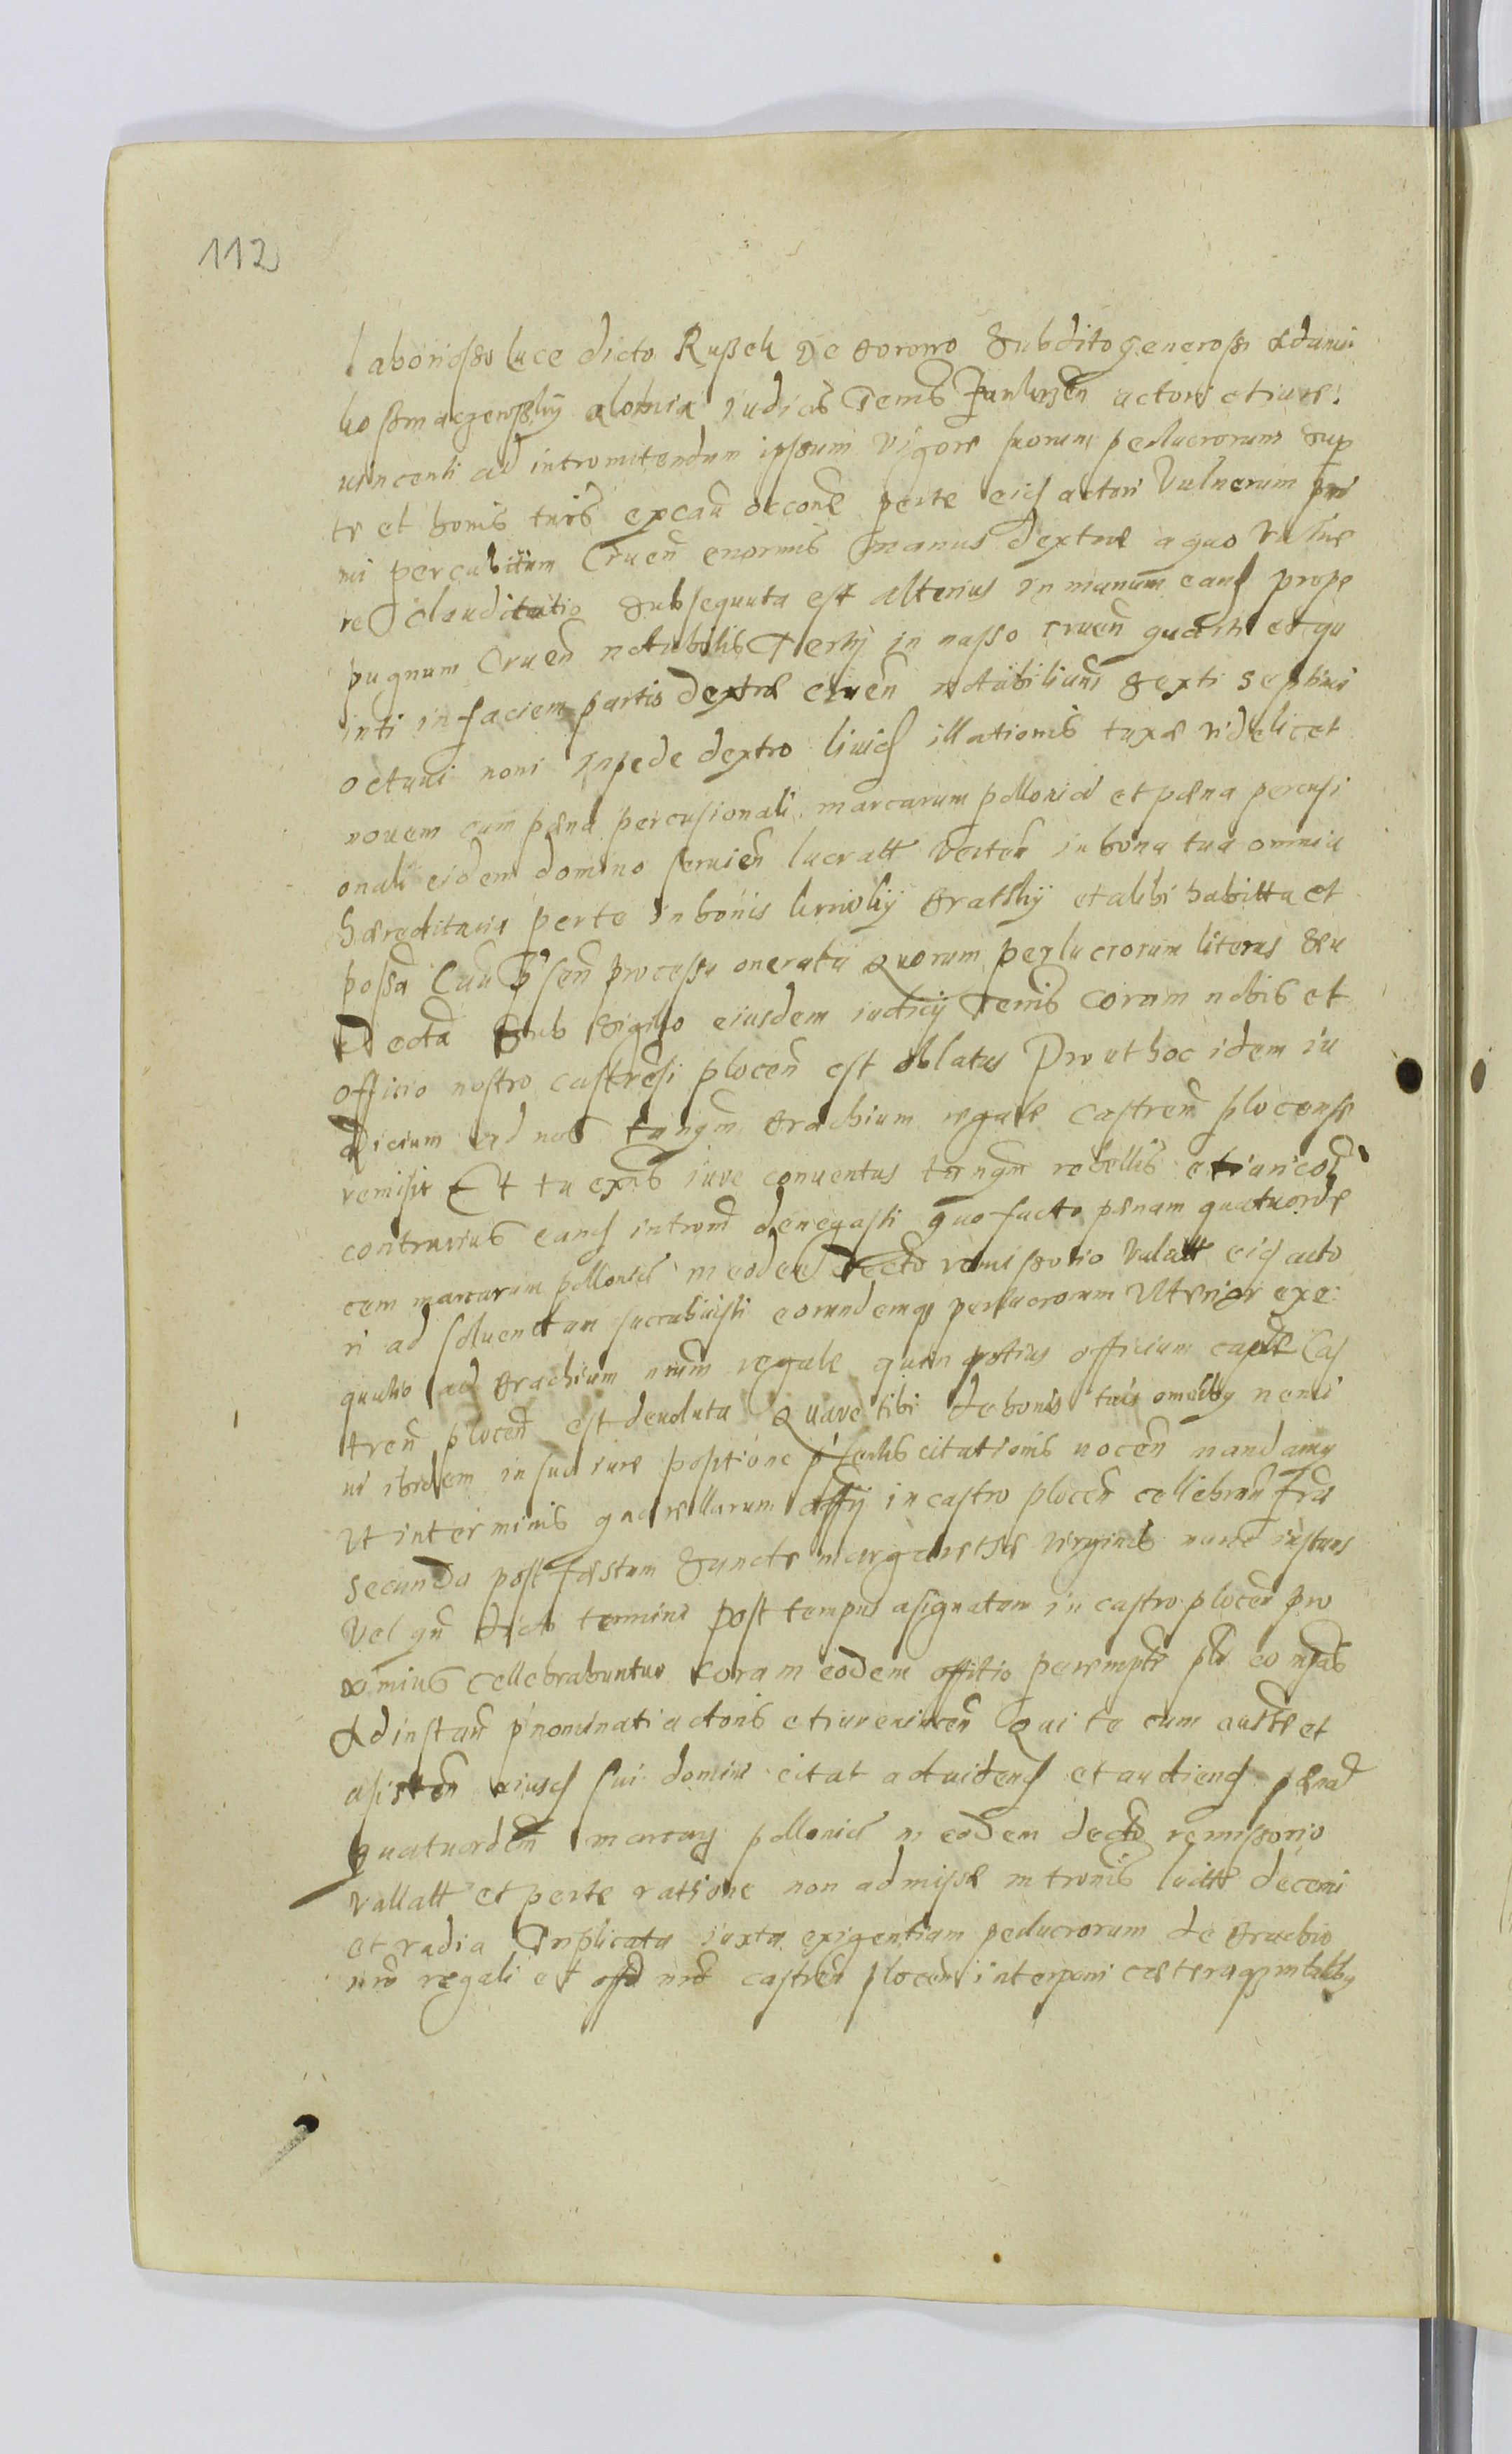 112
laborioso luce dicto Rußek de gorono Subdito generosi Adami
kossmaczewsky a lomia iudicis Terris actori et iure
uincenti ad intromitendum ipsum vigore suorum perlucrorum sup
te et bonis tuis ex cau occone per te eid actori vulnerum pri
mi per cubitum Cruen enormis manus dextræ a quo vulne
re clauditatio subsequuta est alterius in manum eand prope
pugnum Cruen notabilis Tertij in nasso cruen quarti et qu
inti in faciem partis dextræ cruen notabilium sexti septimi
octaui noni in pede dextro liuid illationis taxæ videlicet
nouem cum pæna percusionali marcarum pollonica et pæna percusi
onali eidem domino seruien lucratt vertere in bona tua omnia
hæreditaria per te in bonis Gratsky et alibi habitta et
possa Cum p'sen processu onerata Quorum perlucrorum literas seu
decta Sub Sigillo eiusdem iudicij Terris coram nobis et
officio nostro castrensi plocen est oblatus Prout hoc idem iu
dicium ad nos tanqm brachium regale castren plocense
remisit Et tu ex nis iure conuentus tanqm rebellis et iuri cois
contrarius eand introm denegasti quo facto pænam quatuorde
cem marcarum pollonica in eodem decto remissorio vallatt eid acto
ri ad soluendum succubuisti eorundemq perlucrorum Vlterior exe
qutio ad brachium nrum regale quin potius officium caple Cas
tren plocen est deuoluta Quare tibi de bonis tuis omnibus nemi
ni ibidem in sua iure positione p'sentis citationis nocen mandamus
Vt in terminis querellarum offij in castro plocen cellebran fria
secunda post fæstum Sanctæ margarethæ virginis nunc instans
vel qn dicti termini post tempus asignatum in castro plocen pro
ximius cellebrabuntur Coram eodem offitio peremptr plr compas
Ad instan p'nominati actoris et iure uincen Qui te cum auste et
asisten eiusd sui domini citat ad uidend et audiend pænas
quatuordem marcarum pollonica in eodem decto remissorio
vallatt et per te ratione non admissæ intromis luitte decerni
et vadia Triplicata iuxta exigentiam perlucrorum de brachio
nro regali et offo nro castren plocen interponi cæteraqz